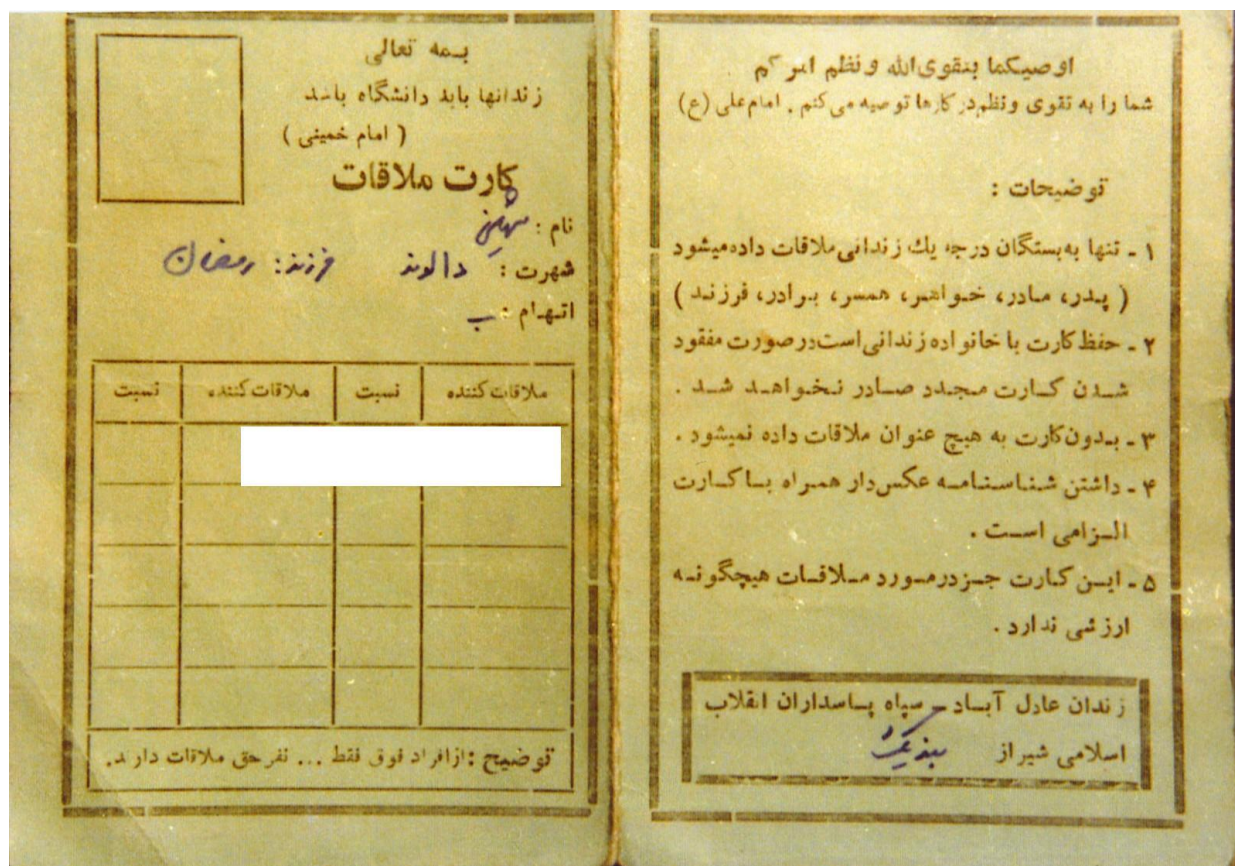 اوصیکما بتقوی‌الله و نظم امرکم
شما را به تقوی و نظم در کارها توصیه می کنم . امام علی (ع)
توضیحات :
۱ ـ تنها به بستگان درجه یك زندانی ملاقات داده میشود
( پدر، مادر، خواهر، همسر، برادر، فرزند )
۲ ـ حفظ کارت با خانواده زندانی است در صورت مفقود
شدن کارت مجدد صادر نخواهد شد .
۳ ـ بدون کارت به هیچ عنوان ملاقات داده نمیشود .
۴ ـ داشتن شناسنامه عکس‌دار همراه با کارت
الزامی است .
۵ ـ این کارت جز در مورد ملاقات هیچگونه
ارزشی ندارد .
زندان عادل آباد ـ سپاه پاسداران انقلاب
اسلامی شیراز
بسمه تعالی
زندانها باید دانشگاه باشد
( امام خمینی )
کارت ملاقات
نام :
شهرت : دالوند فرزند: رمضان
اتهام : ب
ملاقات کننده نسبت ملاقات کننده نسبت
توضیح : از افراد فوق فقط ... نفر حق ملاقات دارند.